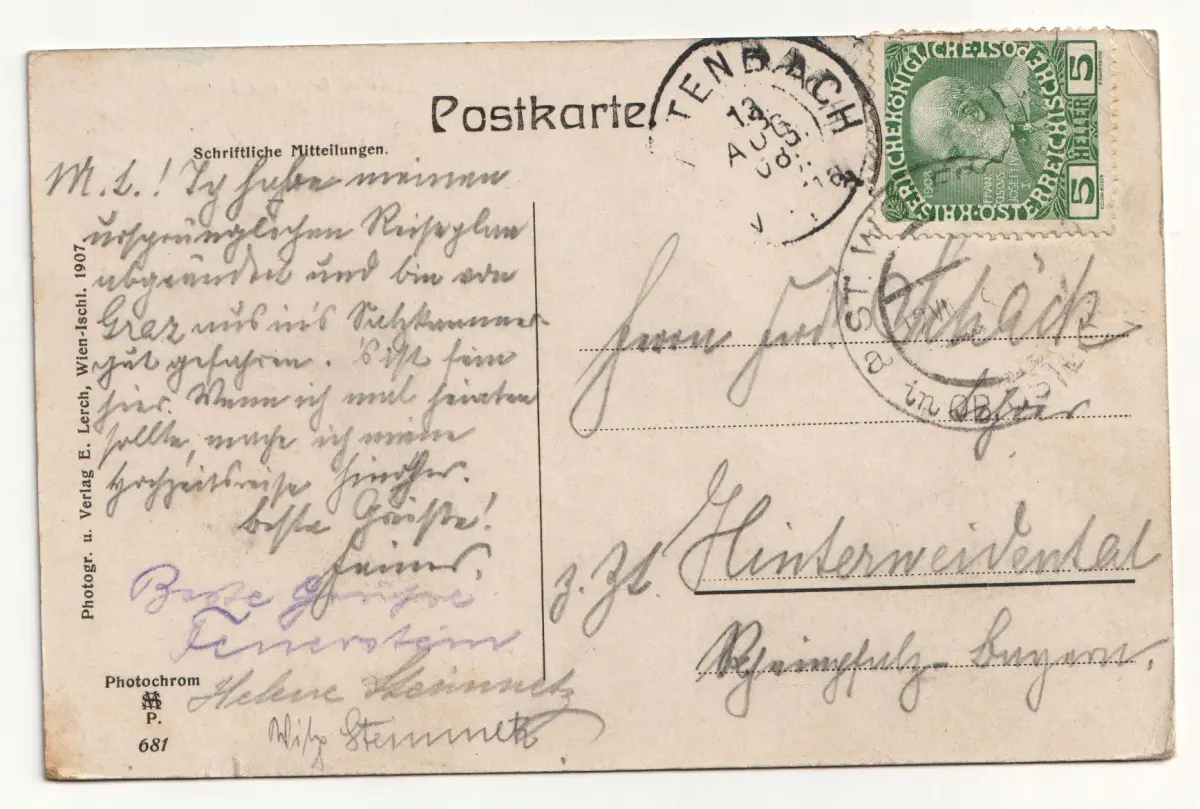 Postkarte.
Schriftliche Mitteilungen.
M. L.! Ich habe meinen
ursprünglichen Reiseplan
abgeändert und bin von
Graz aus in's Salzkammer-
gut gefahren. S'ist fein
hier. Wenn ich mal heiraten
sollte, mache ich meine
Hochzeitsreise hierher.
beste Grüße!
Beste Grüsse
Feuerstein
Helene Steinmetz
Wilh Steinmetz
Photogr. u. Verlag E. Lerch, Wien-Ischl. 1907
Photochrom
P.
681
TENBACH
13
AUG
08
KAISERLICHE KÖNIGLICHE ÖSTERREICHISCHE POST
5 HELLER 5
1908
FRAN
CISCVS
JOSEF I
ST. W
a in OB. ÖSTE
Herrn
Lehrer
z. Zt. Hinterweidental
Rheinpfalz - Bayern.